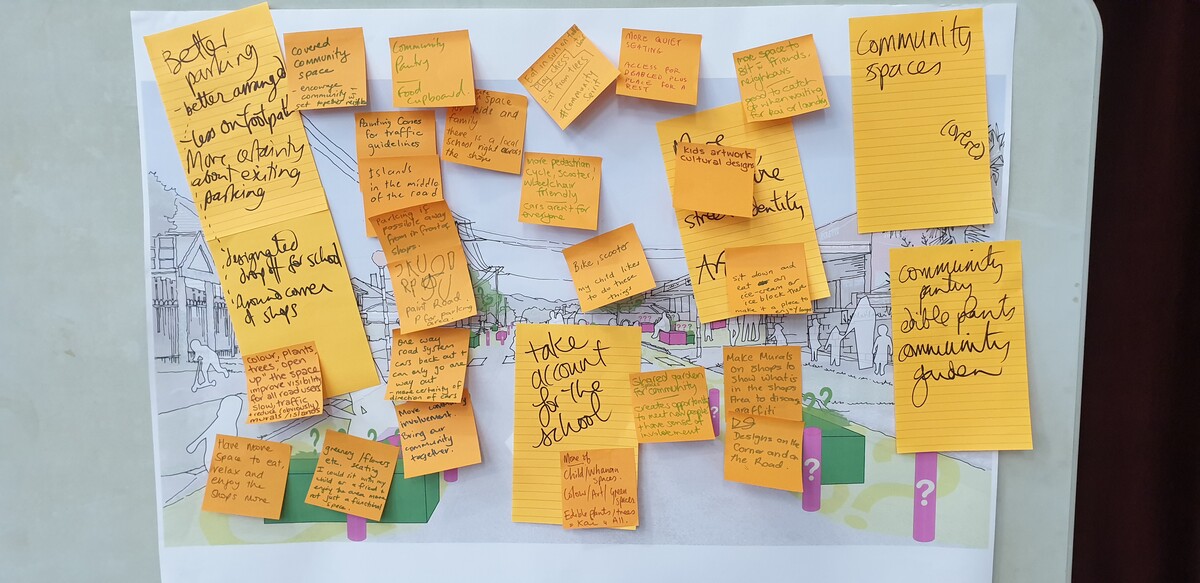 Better
parking
- better arranged
- less on footpath
More certainty
about existing
parking
designated
drop off for school
Around corner
of shops
covered
community
space
- encourage
community
get together
Community
Pantry
Food
Cupboard
Eat in
#Community
MORE QUIET
SEATING
ACCESS FOR
DISABLED PLUS
PLACE FOR A
REST
more space to
sit friends,
neighbours
good to catch
up when waiting
for kai or laundry
Community
spaces
covered
Painting Cones
for traffic
guidelines
space
kids and
family
there is a local
school right across
the shops
Islands
in the middle
of the road
More pedestrian
cycle, scooter,
wheelchair
friendly
cars aren't for
everyone
kids artwork
cultural designs
identity
Art
Parking if
possible away
from in front of
shops.
Paint Road
P for parking
area.
Bike, scooter
my child likes
to do these
things
sit down and
eat an
ice-cream or
ice block there
make it a place to
enjoy
community
pantry
edible plants
community
garden
One way
road system
cars back out +
can only go one
way out
- more certainty of
direction of cars
take
account
for the
school
colour, plants,
trees, open
up the space
improve visibility
for all road users
slow traffic
murals/islands
More
involvement.
Bring our
community
together.
shared garden
for community
creates opportunity
to meet new people
+ have sense of
involvement
Make Murals
on shops to
show what is
in the shops
Area to discourage
graffiti
Designs on the
Corner and on
The Road.
Have more
space to eat,
relax and
enjoy the
shops more
greenery/flowers
etc. seating
I could sit with my
child or a friend &
enjoy the area more
not just a functional
space.
More of
Child/Whanau
spaces.
Colour/Art/Green
spaces
Edible plants/trees
= Kai 4 All.